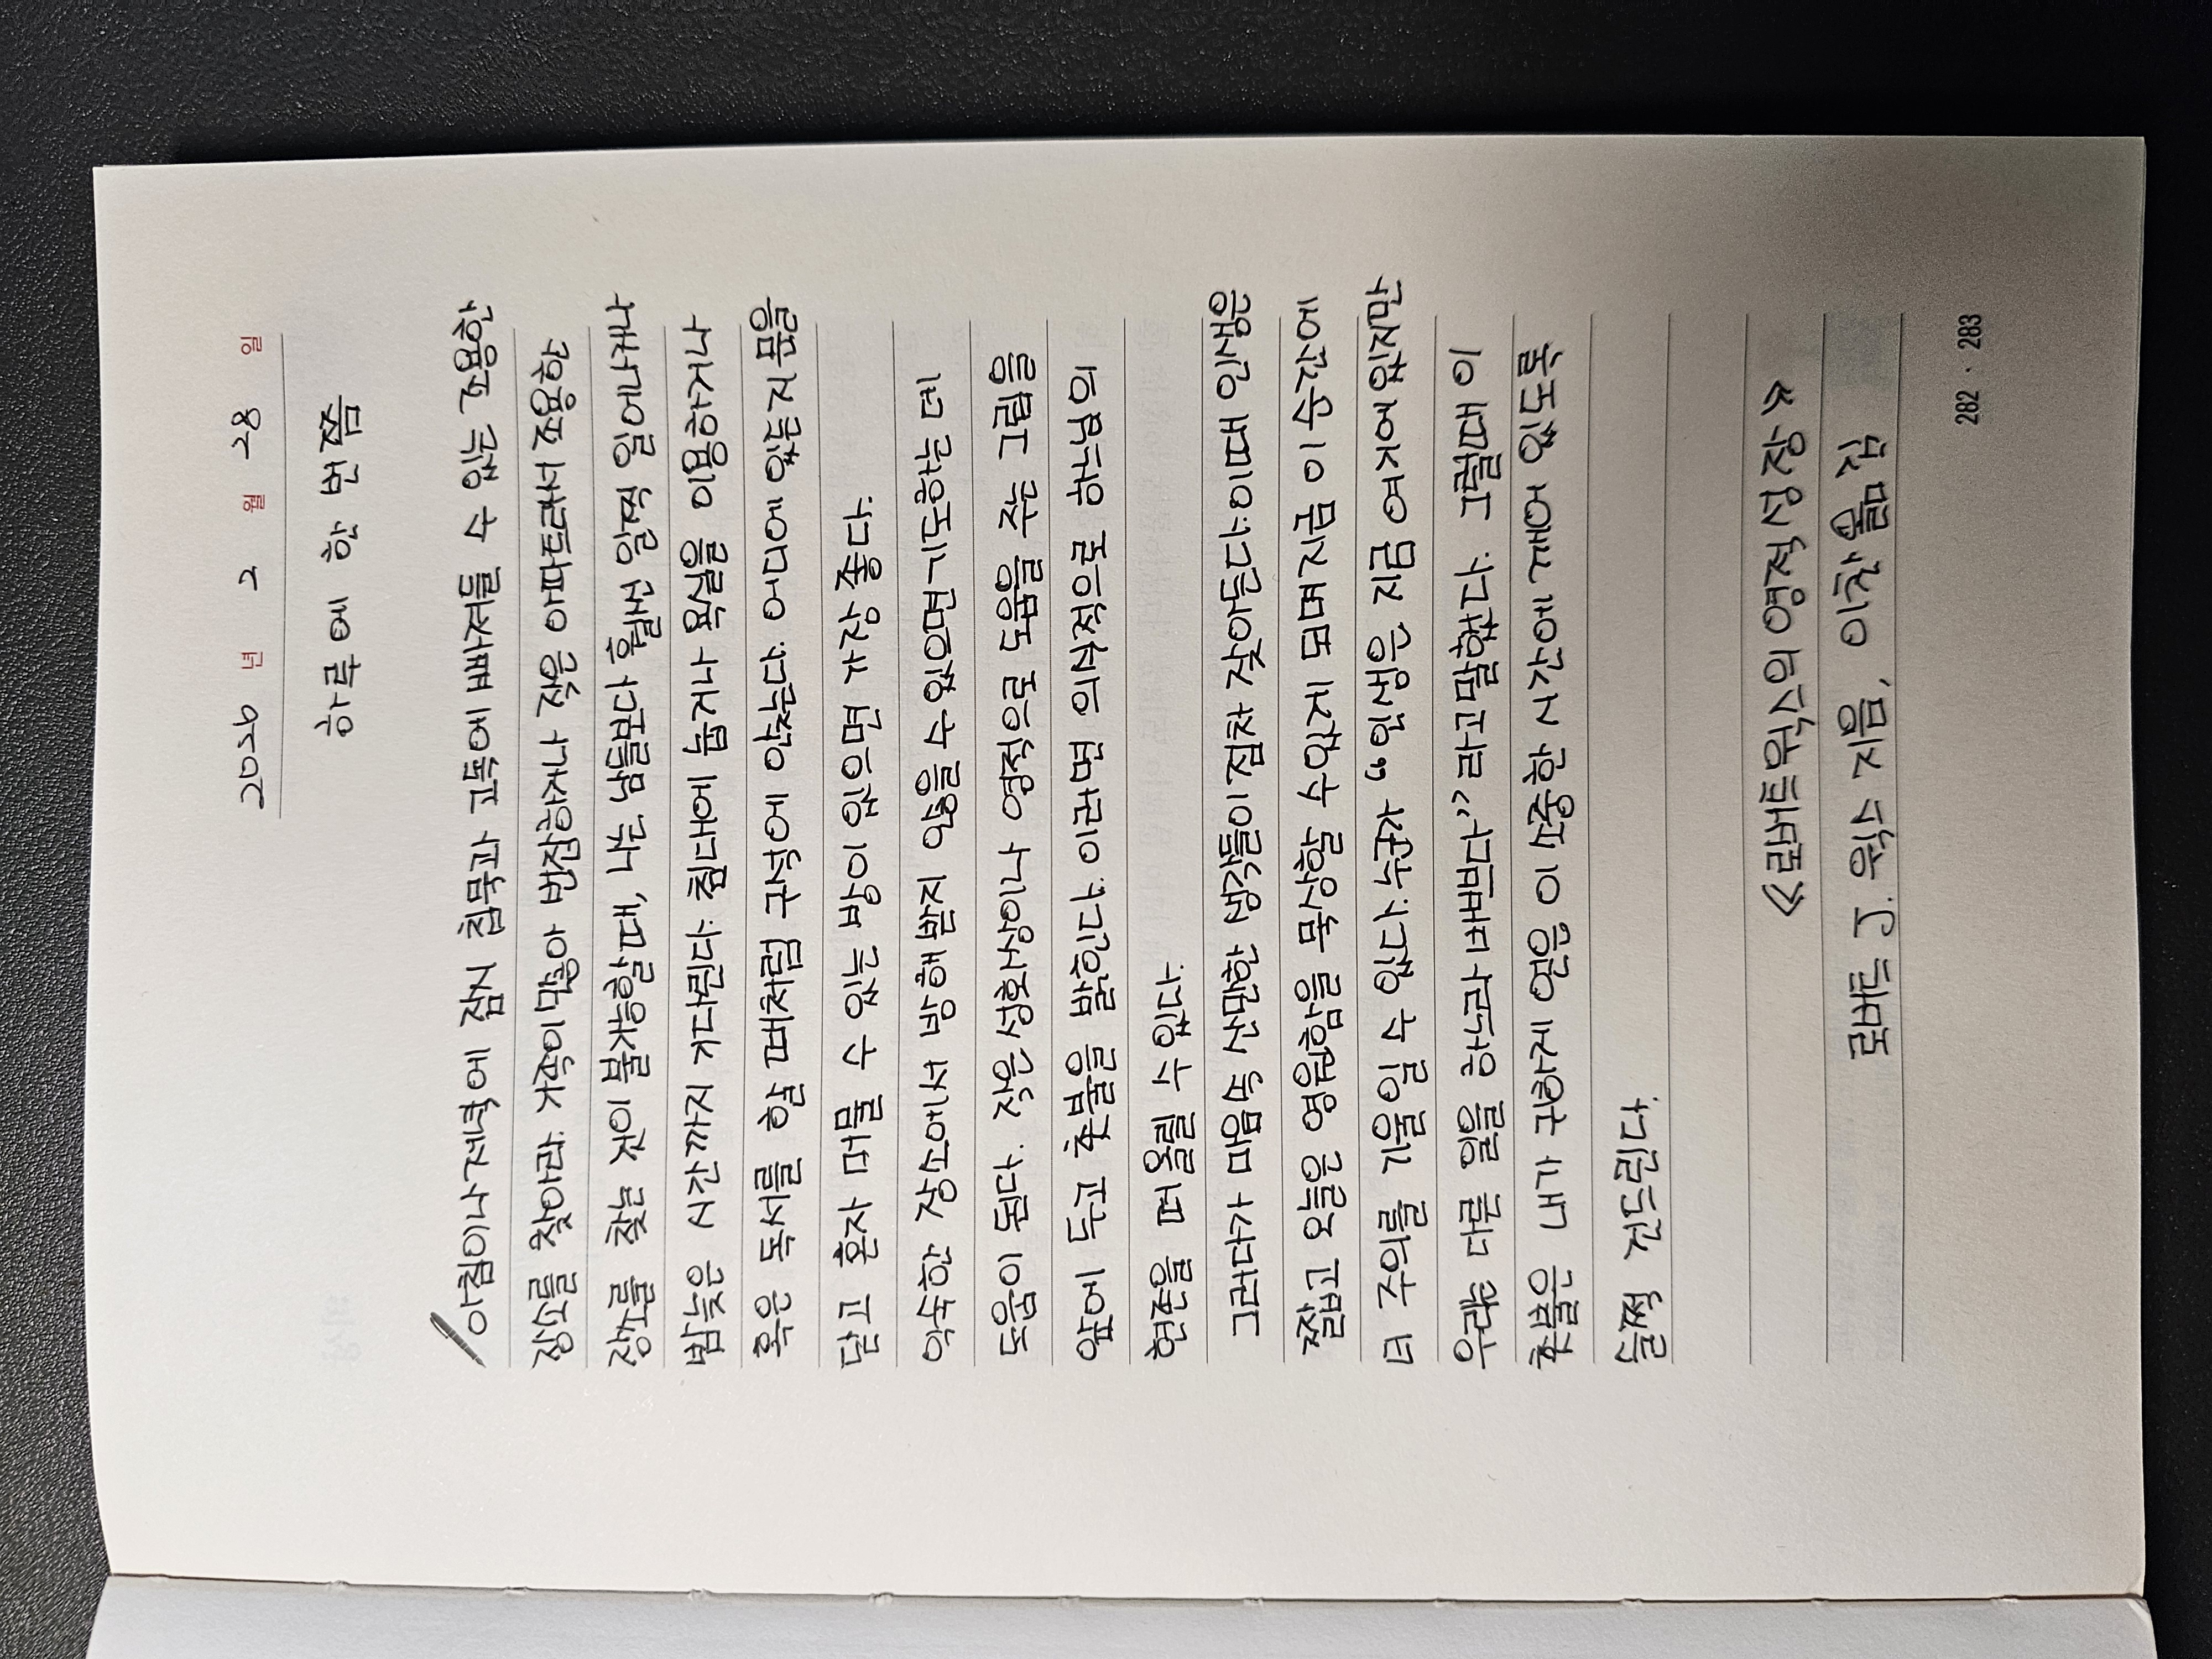 2029년 2월 28일
하루에 한 번쯤
아침이나 저녁에 잠시 침묵과 고독에 빠져들 수 있는 조용한
장소를 찾아라. 가족이 많아 번잡하거나 작은 아파트라서 조용한
장소를 찾는 것이 불가능할 때, 나는 남들보다 훨씬 일찍 일어나거나
밤 늦은 시간까지 기다린다. 침대에 눕거나 욕실을 이용하거나
혹은 독서를 할 때처럼 구석에 앉는다. 어디에 있든지 문을
닫고 혼자 머물 수 있는 방이 있으면 가장 좋다.
약속한 장소에서 방해받지 않을 수 있으면 기도하는 데
도움이 된다. 작은 성화상이나 영적으로 도움을 주는 그림을
앞에 두고 촛불을 밝혀도 좋다. 이러면 의식적으로 하느님의
현존을 떠올릴 수 있다.
그러다가 마음 속 산만한 생각들이 점차 잦아든다. 이때야 인생을
짧고 오늘은 영원함을 묵상할 수 있게 되면서 지금 이 순간에
더 주의를 기울일 수 있다. 누군가 "인생은 지금 여기에 있지만
우리는 다른 곳을 하느라 바쁘다"라고 말했다. 그럴 때 이
촛불은 내가 귀하게 얻은 이 소중한 시간에 깨어 있도록
슬쩍 건드린다.
《로버트 위스의 영적인 성장》
로버트 J. 윅스 지음, 이찬 옮김
282 · 283